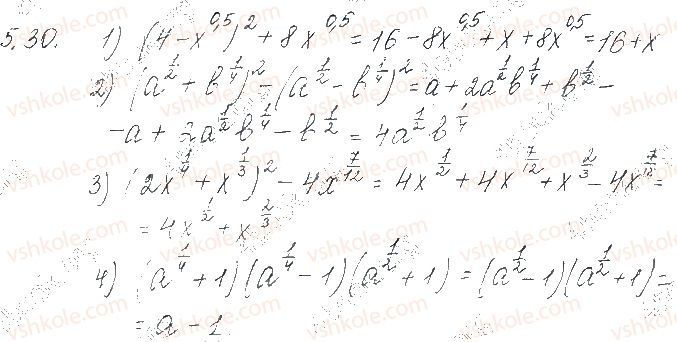 5.30. 1) (4 - x^{0,5})^2 + 8x^{0,5} = 16 - 8x^{0,5} + x + 8x^{0,5} = 16 + x
2) (a^{1/2} + b^{1/4})^2 - (a^{1/2} - b^{1/4})^2 = a + 2a^{1/2}b^{1/4} + b^{1/2} -
- a + 2a^{1/2}b^{1/4} - b^{1/2} = 4a^{1/2}b^{1/4}
3) (2x^{1/4} + x^{1/3})^2 - 4x^{7/12} = 4x^{1/2} + 4x^{7/12} + x^{2/3} - 4x^{7/12} =
= 4x^{1/2} + x^{2/3}
4) (a^{1/4} + 1)(a^{1/4} - 1)(a^{1/2} + 1) = (a^{1/2} - 1)(a^{1/2} + 1) =
= a - 1
vshkole.com